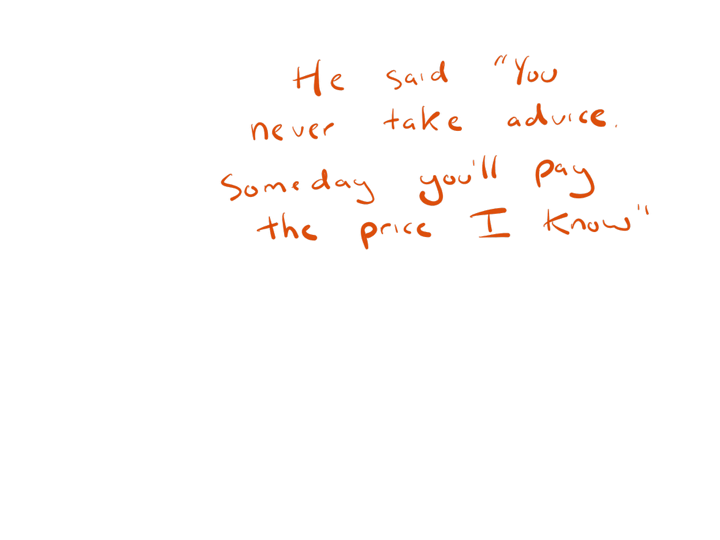 He said "You
never take advice.
Someday you'll pay
the price I know"